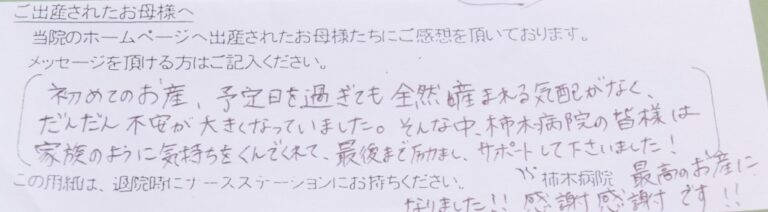 ご出産されたお母様へ
当院のホームページへ出産されたお母様たちにご感想を頂いております。
メッセージを頂ける方はご記入ください。
初めてのお産、予定日を過ぎても全然産まれる気配がなく、
だんだん不安が大きくなっていました。そんな中、柿木病院の皆様は
家族のように気持ちをくんでくれて、最後まで励まし、サポートして下さいました!
この用紙は、退院時にナースステーションにお持ちください。 柿木病院 最高のお産に
なりました!! 感謝感謝です!!